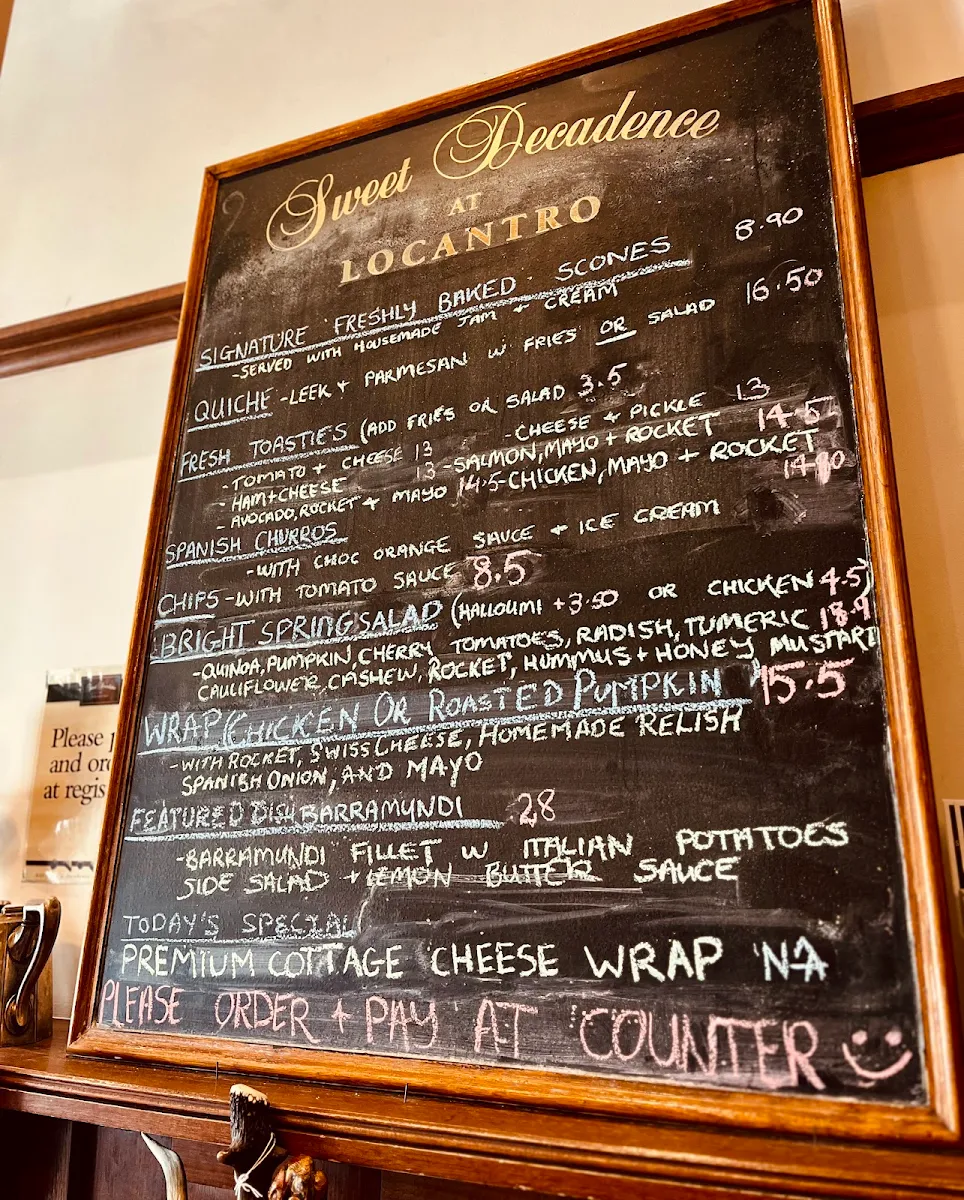 Sweet Decadence
AT
LOCANTRO
SIGNATURE FRESHLY BAKED SCONES 8.90
-SERVED WITH HOUSEMADE JAM + CREAM
QUICHE -LEEK + PARMESAN W FRIES OR SALAD 16.50
FRESH TOASTIES (ADD FRIES OR SALAD 3.5
-TOMATO + CHEESE 13 -CHEESE + PICKLE 13
-HAM+CHEESE 13 -SALMON, MAYO + ROCKET 14.5
-AVOCADO, ROCKET + MAYO 14.5 -CHICKEN, MAYO + ROCKET
SPANISH CHURROS
-WITH CHOC ORANGE SAUCE + ICE CREAM
CHIPS -WITH TOMATO SAUCE 8.5
BRIGHT SPRING SALAD (HALLOUMI +3.50 OR CHICKEN 4.5)
-QUINOA, PUMPKIN, CHERRY TOMATOES, RADISH, TUMERIC 18.9
CAULIFLOWER, CASHEW, ROCKET, HUMMUS + HONEY MUSTART
WRAP/CHICKEN OR ROASTED PUMPKIN 15.5
-WITH ROCKET, SWISS CHEESE, HOMEMADE RELISH
SPANISH ONION, AND MAYO
FEATURED DISH BARRAMUNDI 28
-BARRAMUNDI FILLET W ITALIAN POTATOES
SIDE SALAD + LEMON BUTTER SAUCE
TODAY'S SPECIAL
PREMIUM COTTAGE CHEESE WRAP NA
PLEASE ORDER + PAY AT COUNTER
Please
and
at